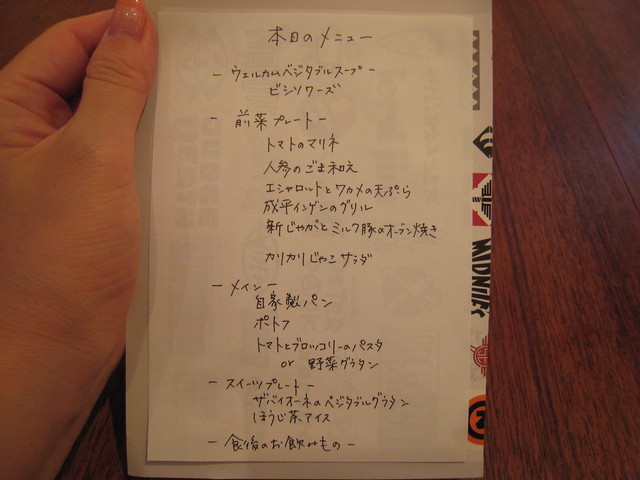 本日のメニュー
- ウェルカムベジタブルスープ -
ビシソワーズ
- 前菜プレート -
トマトのマリネ
人参のごま和え
エシャロットとワカメの天ぷら
成平インゲンのグリル
新じゃがとミルク豚のオーブン焼き
カリカリじゃこサラダ
- メイン -
自家製パン
ポトフ
トマトとブロッコリーのパスタ
or 野菜グラタン
- スイーツプレート -
ザバイオーネのベジタブルグラタン
ほうじ茶アイス
- 食後のお飲みもの -